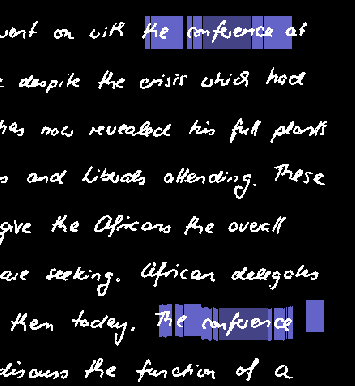 went on with the conference at
despite the crisis which had
has now revealed his full plans
and Liberals attending. These
give the Africans the overall
are seeking. African delegates
them today. The conference
discuss the function of a